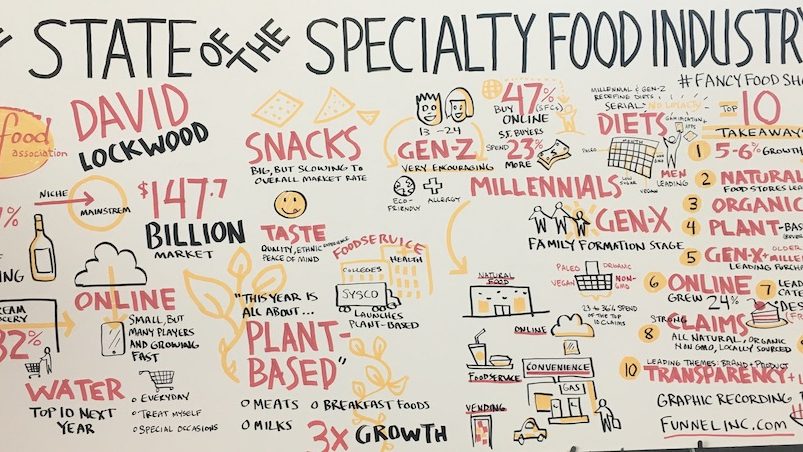 STATE OF THE SPECIALTY FOOD INDUSTRY
#FANCYFOODSHO
food
association
DAVID
LOCKWOOD
NICHE
MAINSTREM
$147.7
BILLION
MARKET
ONLINE
SMALL, BUT
MANY PLAYERS
AND GROWING
FAST
82%
WATER
TOP 10 NEXT
YEAR
EVERYDAY
TREAT MYSELF
SPECIAL OCCASIONS
SNACKS
BIG, BUT SLOWING TO
OVERALL MARKET RATE
TASTE
QUALITY, ETHNIC EXPERIENCE
PEACE OF MIND
FOODSERVICE
COLLEGES
HEALTH
SYSCO
LAUNCHES
PLANT-BASED
"THIS YEAR IS
ALL ABOUT...
PLANT-
BASED"
MEATS
BREAKFAST FOODS
MILKS
3X GROWTH
13-24
GEN-Z
VERY ENCOURAGING
ECO-
FRIENDLY
ALLERGY
47%
BUY
ONLINE
S.F. BUYERS
SPEND 23%
MORE
MILLENNIALS
GEN-X
FAMILY FORMATION STAGE
MILLENNIAL & GEN-Z
REDEFINING DIETS
SERIAL: NO LOYALTY
DIETS
PALEO
MONTH
LOW
SUGAR
VEGAN
MEN
LEADING
NATURAL
FOOD
ONLINE
FOODSERVICE
CONVENIENCE
GAS
VENDING
PALEO
ORGANIC
VEGAN
NON-
GMO
SPEND
OF THE TOP
10 CLAIMS
TOP 10
TAKEAWAYS
1 5-6% GROWTH
2 NATURAL
FOOD STORES LEA
3 ORGANIC
4 PLANT-BAS
5 GEN-X + MILLE
LEADING PURCHA
6 ONLINE
GREW 24%
7 LEAD
CATE
DES
8 STRONG
CLAIMS
ALL NATURAL, ORGANIC
NON GMO, LOCALLY SOURCED
10 LEADING THEMES: BRAND + PRODUCT
TRANSPARENCY
GRAPHIC RECORDING
FUNNELINC.COM